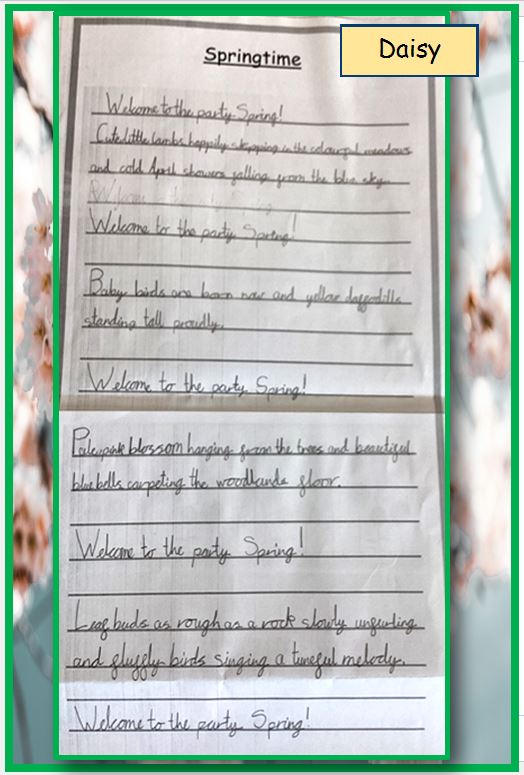 Springtime
Daisy
Welcome to the party Spring!
Cute little lambs happily skipping in the colourful meadows
and cold April showers falling from the blue sky.
Welcome to the party Spring!
Baby birds are born now and yellow daffodills
standing tall proudly.
Welcome to the party Spring!
Pale pink blossom hanging from the trees and beautiful
blue bells carpeting the woodlands floor.
Welcome to the party Spring!
Leaf buds as rough as a rock slowly unfurling
and fluffy birds singing a tuneful melody.
Welcome to the party Spring!